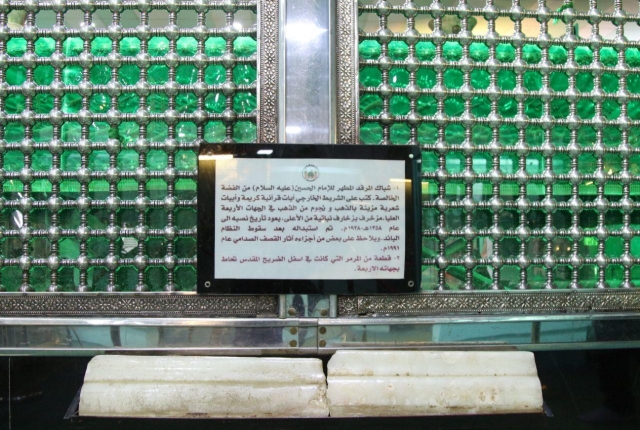 ١- شباك المرقد المطهر للإمام الحسين (عليه السلام) من الفضة
الخالصة. كتب على الشريط الخارجي آيات قرآنية كريمة وأبيات
شعرية مزينة بالذهب و نجوم من الذهب في الجهات الأربعة
العليا، مزخرف بزخارف نباتية من الأعلى. يعود تأريخ نصبه الى
عام ١٣٥٨هـ-١٩٣٨م. تم استبداله بعد سقوط النظام
البائد. ويلاحظ على بعض من أجزاءه آثار القصف الصدامي عام
١٩٩١م.
٢- قطعة من المرمر التي كانت في اسفل الضريح المقدس تحاط
بجهاته الاربعة.